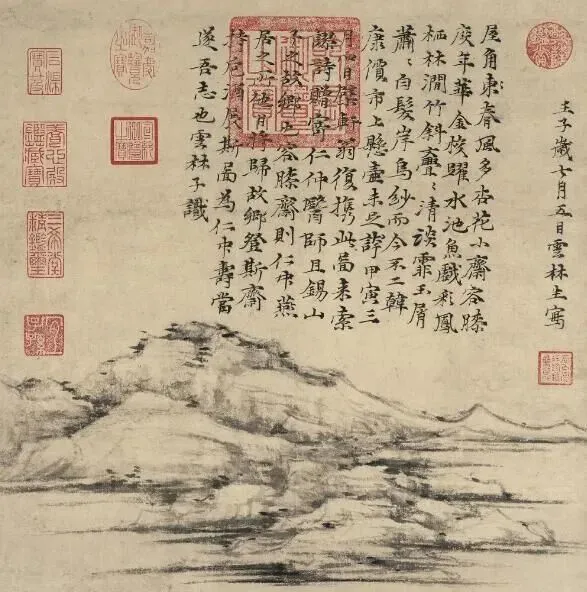 壬子歲七月五日雲林生寫
屋角東春風多杏花小齋容膝
度年華金梭躍水池魚戲彩鳳
栖林澗竹斜亹〻清談霏玉屑
蕭〻白髮岸烏紗而今不二韓
康價市上懸壺未足誇甲寅三
月四日檗軒翁復携此圖來索
謬詩贈寄仁仲醫師且錫山
予之故鄉也容膝齋則仁仲燕
居之所他日將歸故鄉登斯齋
持卮酒展斯圖為仁仲壽當
遂吾志也雲林子識
嘉慶御覽之寶
三希堂精鑑璽
宜子孫